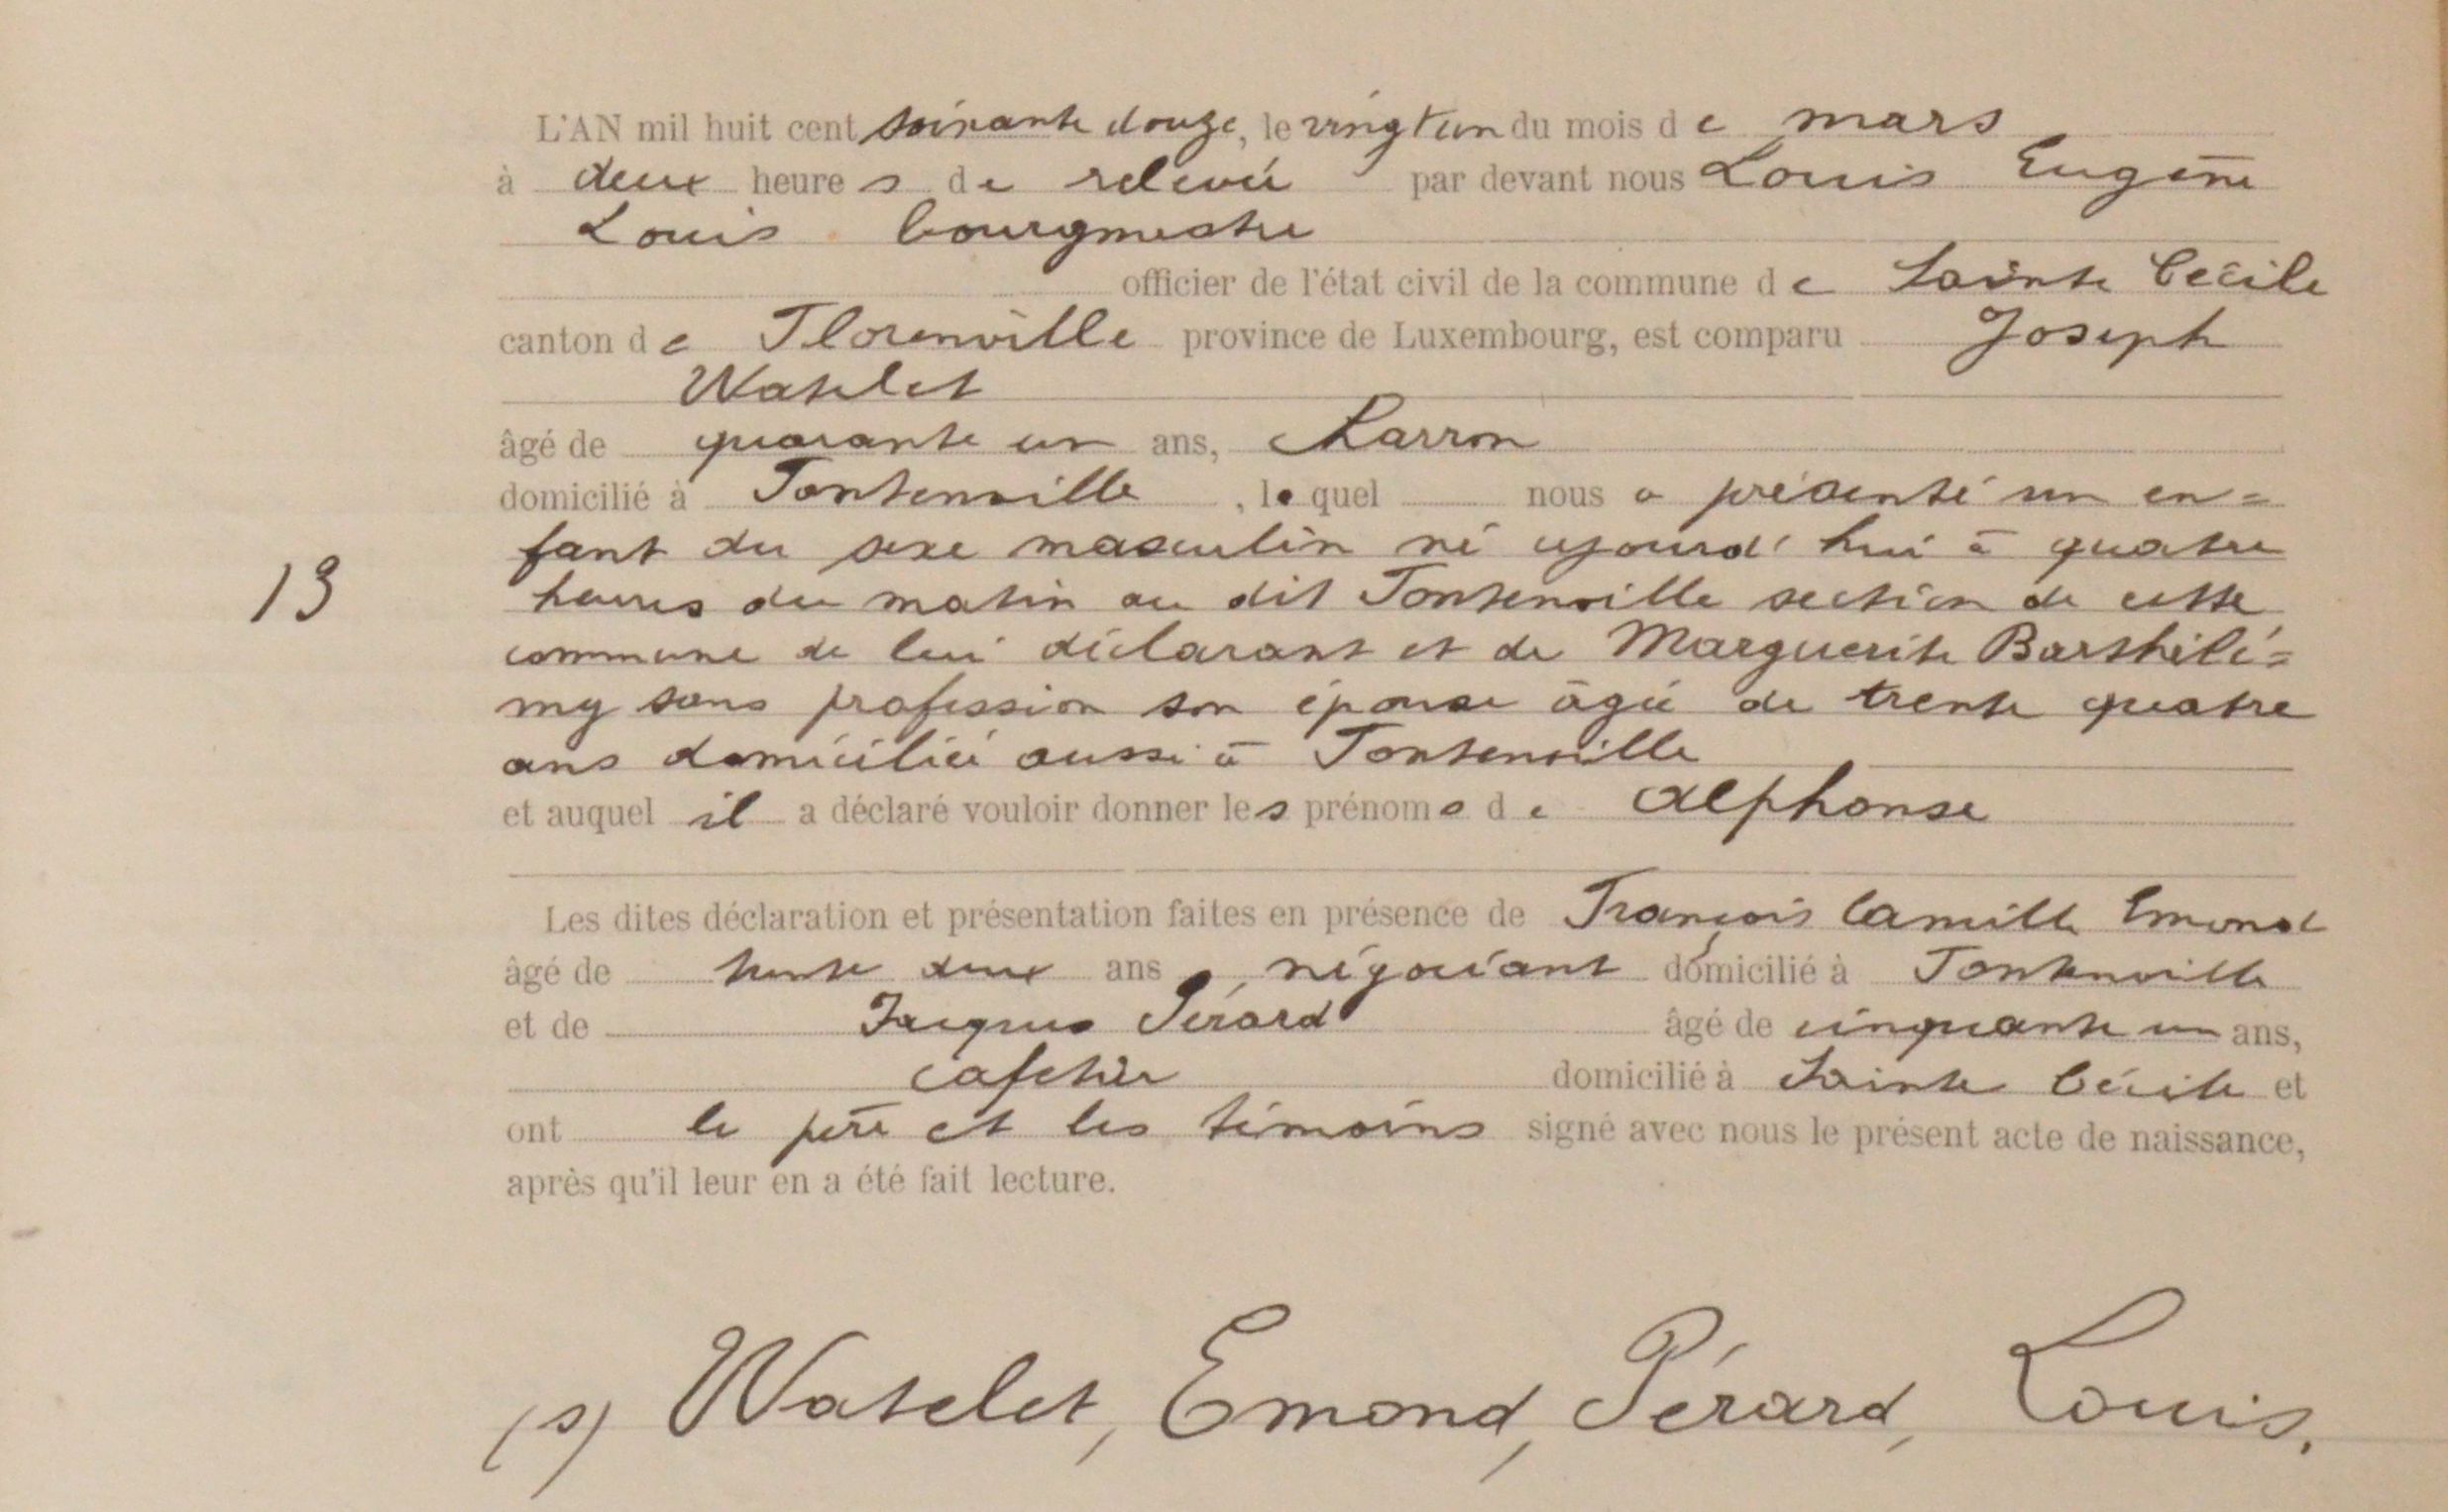 L'AN mil huit cent soixante douze, le vingt un du mois de mars
à deux heures de relevée par devant nous Louis Eugène
Louis bourgmestre
officier de l'état civil de la commune de Sainte Cécile
canton de Florenville province de Luxembourg, est comparu Joseph
Watelet
âgé de quarante un ans, charron
domicilié à Fontenoille, lequel nous a présenté un en=
fant du sexe masculin né ajourd'hui à quatre
heures du matin au dit Fontenoille section de cette
commune de lui déclarant et de Marguerite Barthélé=
my sans profession son épouse âgée de trente quatre
13
ans domiciliée aussi à Fontenoille
et auquel il a déclaré vouloir donner les prénoms de Alphonse
Les dites déclaration et présentation faites en présence de François Camille Emond
âgé de trente deux ans, négociant domicilié à Fontenoille
et de Jacques Pérard âgé de cinquante un ans,
cafetier domicilié à Sainte Cécile et
ont le père et les témoins signé avec nous le présent acte de naissance,
après qu'il leur en a été fait lecture.
(s) Watelet, Emond, Pérard, Louis.